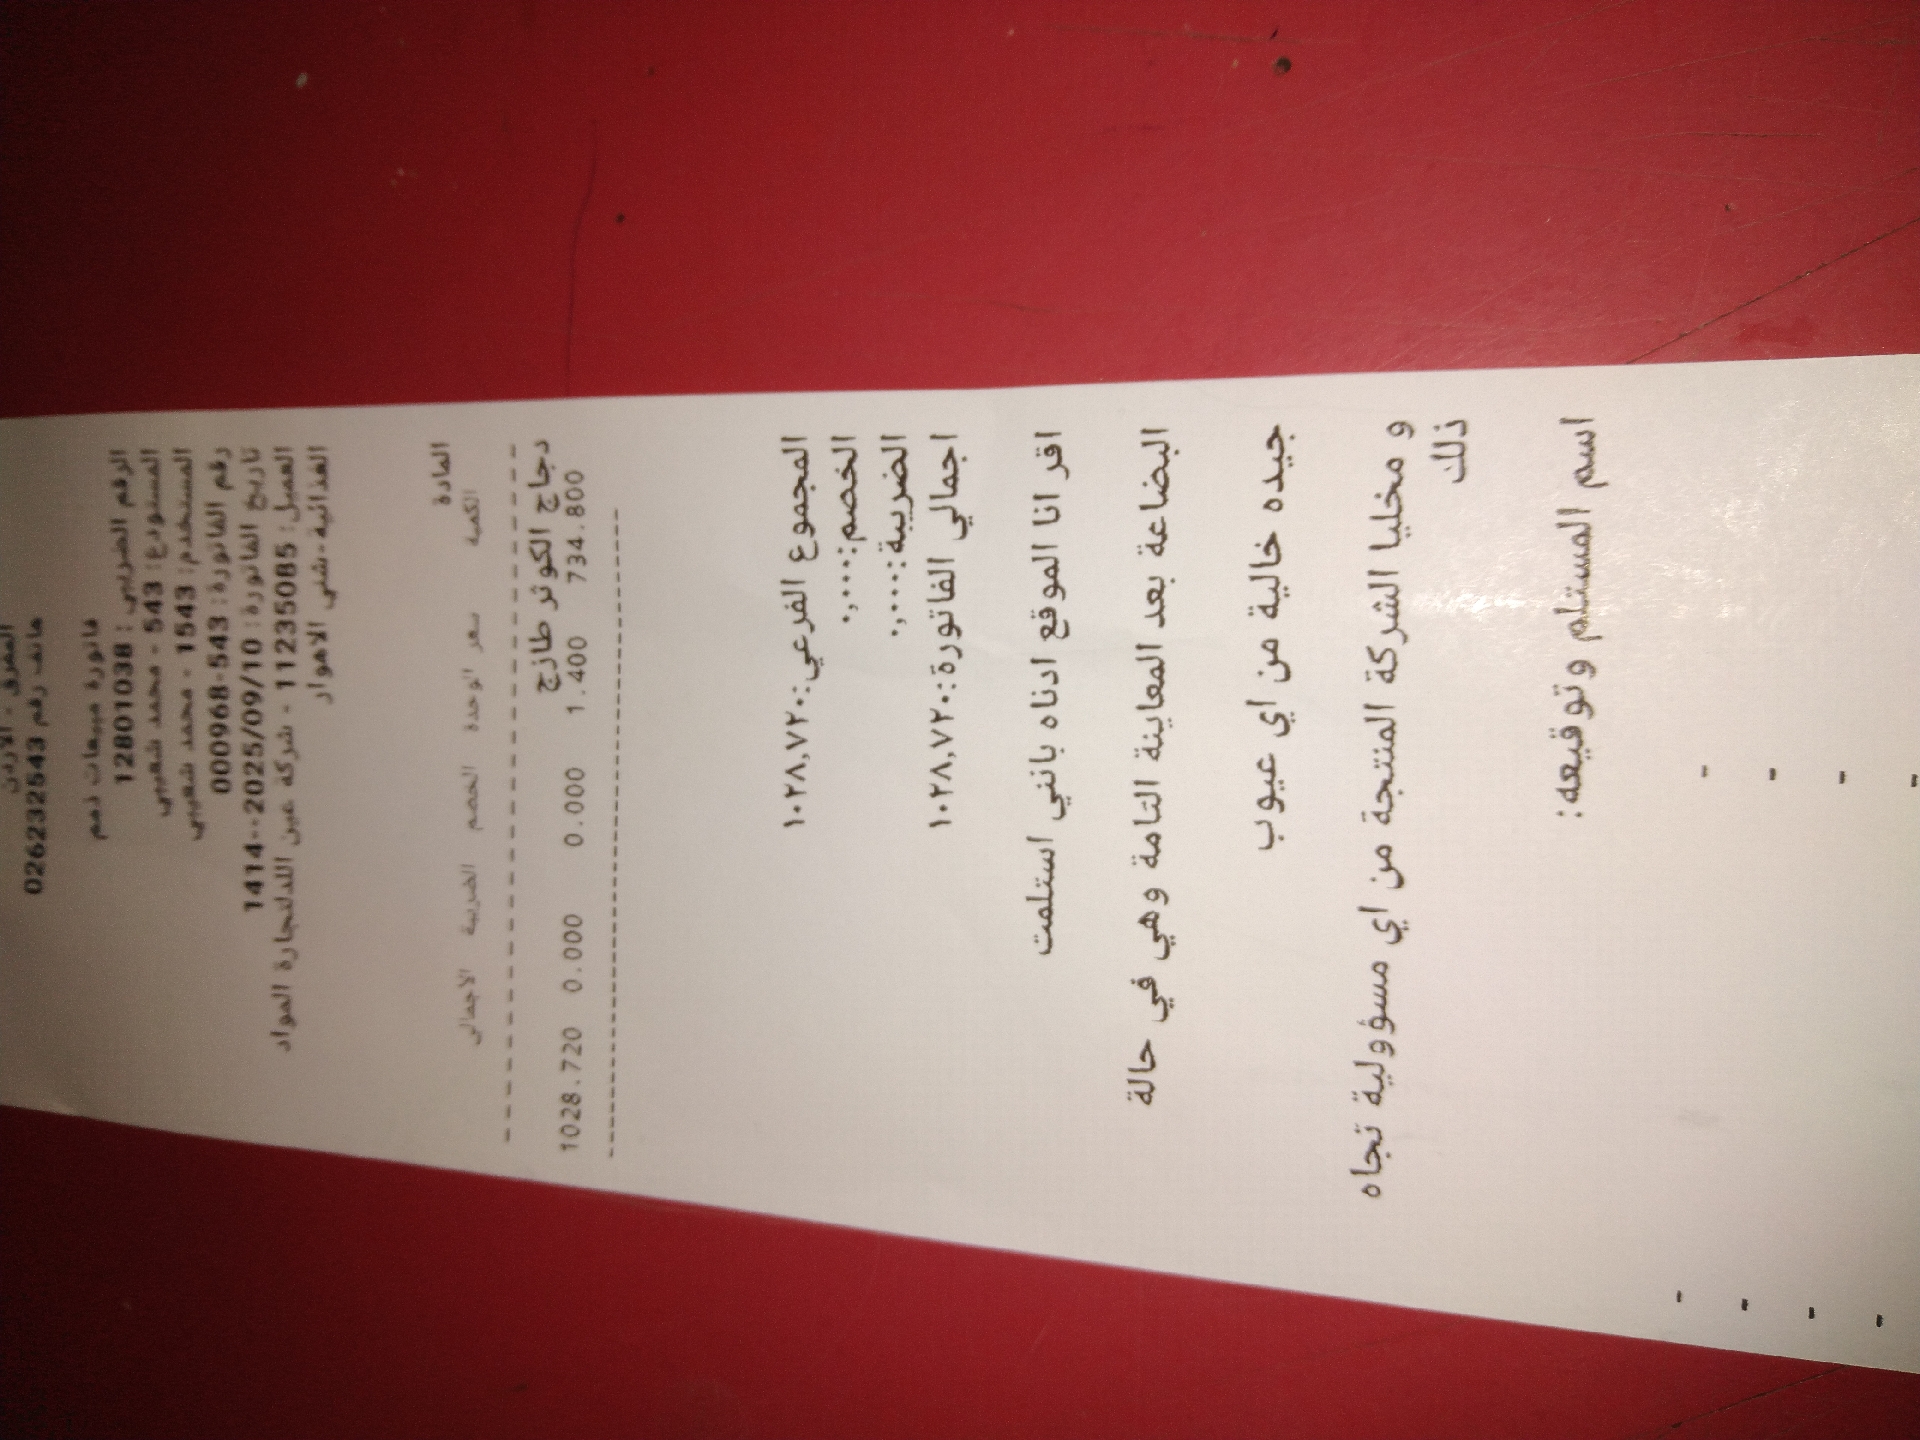 المفرق - الاردن
هاتف رقم 0262332543
فاتورة مبيعات ذمم
الرقم الضريبي : 12801038
المستودع: 543 - محمد شعيبي
المستخدم: 1543 - محمد شعيبي
رقم الفاتورة: 543-000968
تاريخ الفاتورة : 2025/09/10--1414
العميل: 11235085 - شركة عين اللدلتجارة المواد
الغذائية-شلي الاهوار
المادة
الكمية سعر الوحدة الخصم الضريبة الاجمالي
دجاج الكوثر طازج
734.800 1.400 0.000 0.000 1028.720
المجموع الفرعي:١٠٢٨,٧٢٠
الخصم:٠,٠٠٠
الضريبة:٠,٠٠٠
اجمالي الفاتورة:١٠٢٨,٧٢٠
اقر انا الموقع ادناه بانني استلمت
البضاعة بعد المعاينة التامة وهي في حالة
جيده خالية من اي عيوب
و مخليا الشركة المنتجة من اي مسؤولية تجاه
ذلك
اسم المستلم وتوقيعه: